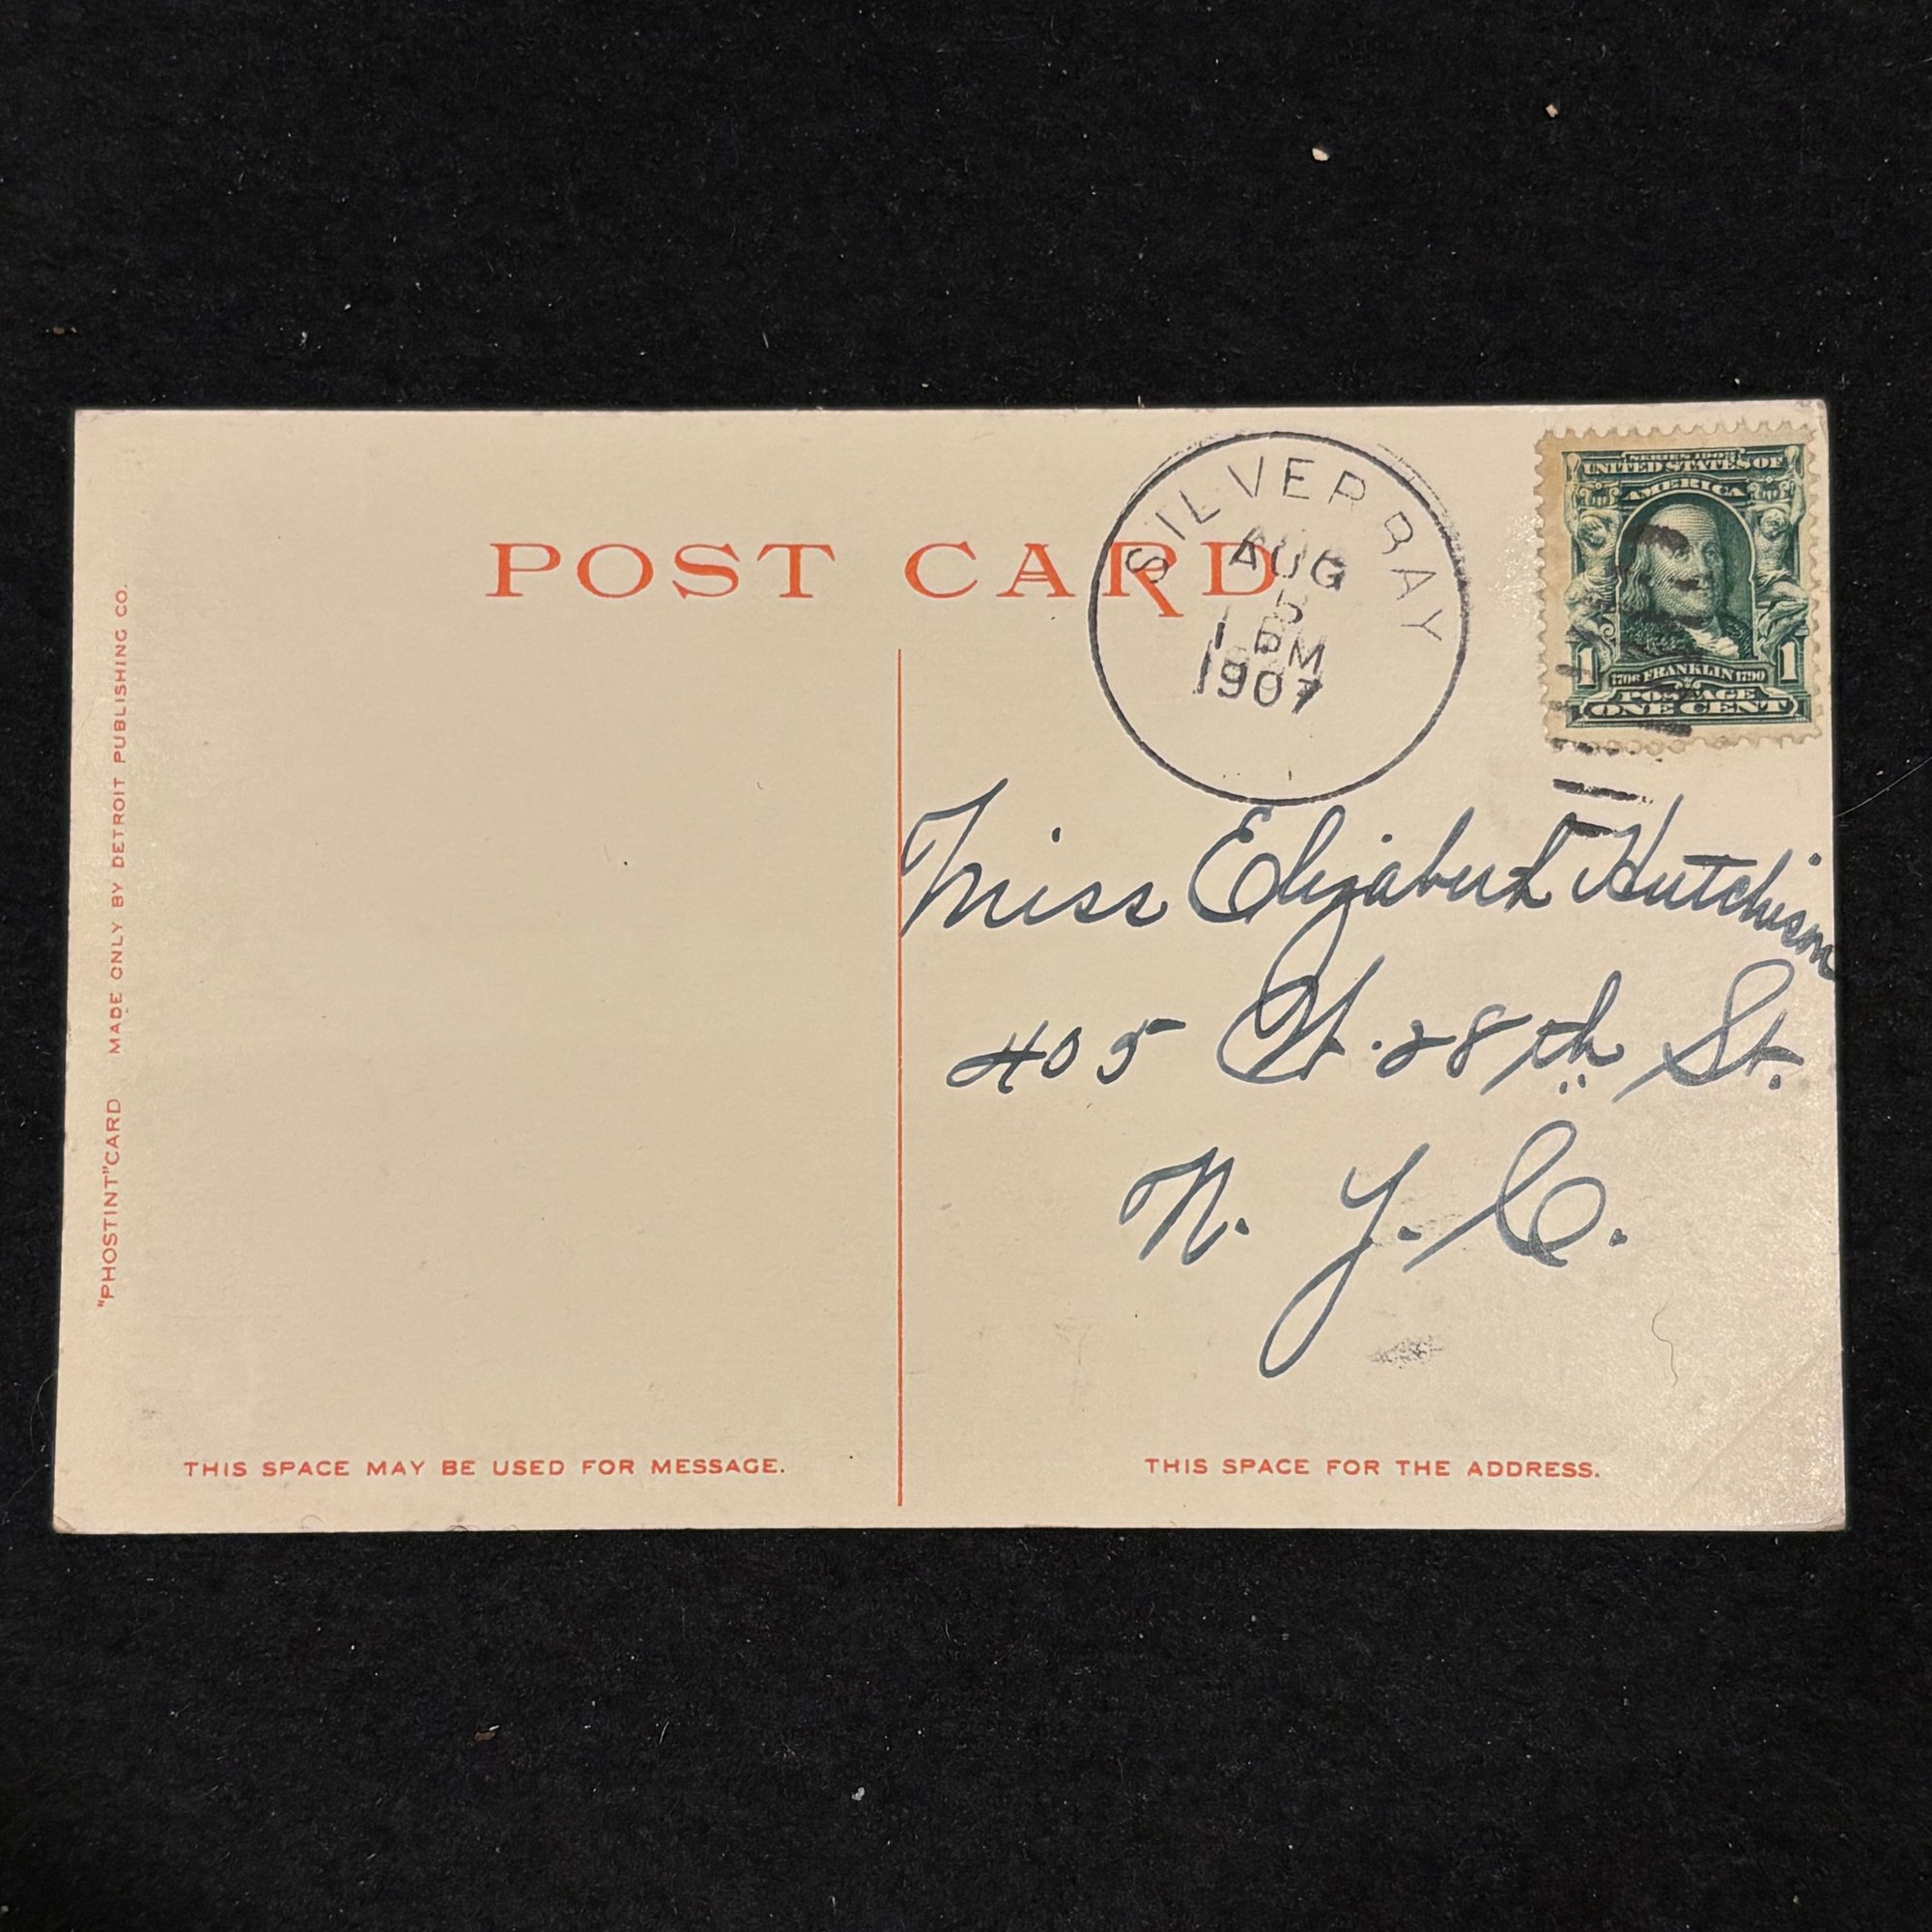 POST CARD
SILVER BAY
AUG
5
1 PM
1907
SERIES 1902
UNITED STATES OF
AMERICA
1 1706 FRANKLIN 1790 1
POSTAGE
ONE CENT
Miss Elizabeth Hutchison
405 W. 28th St.
N. Y. C.
"PHOSTINT" CARD MADE ONLY BY DETROIT PUBLISHING CO.
THIS SPACE MAY BE USED FOR MESSAGE.
THIS SPACE FOR THE ADDRESS.